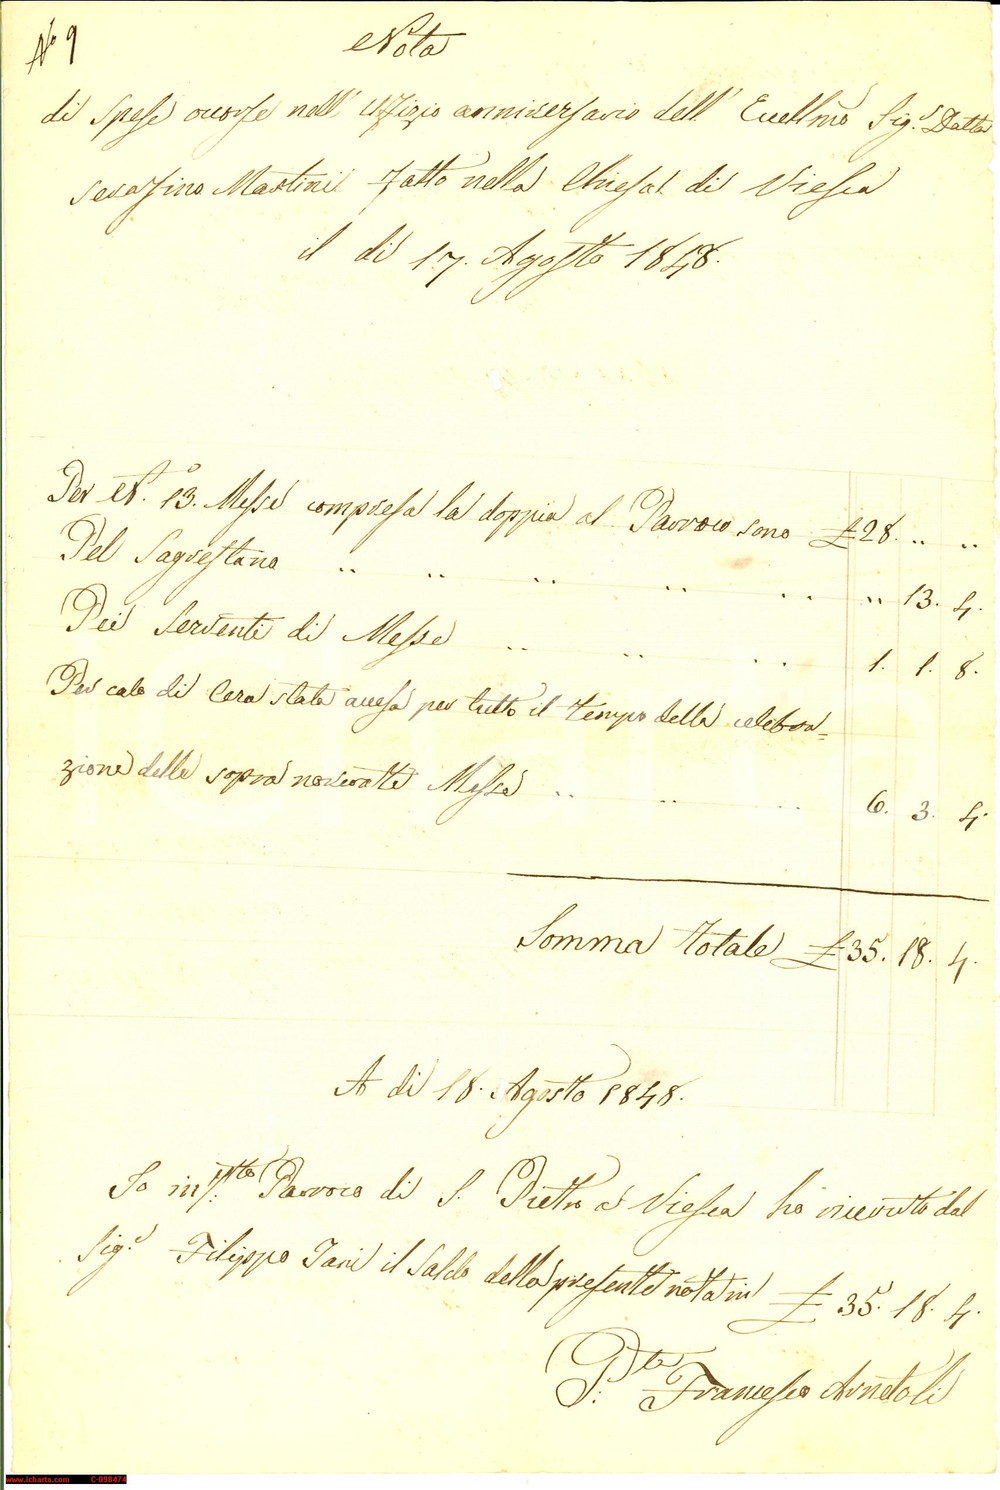 N.º 9
Nota
di Spese occorse nell' Uffizio anniversario dell' Eccell.mo Sig.r Dotto
Serafino Martini fatto nella Chiesa di Viesca
il di 17. Agosto 1848.
Per N.º 13. Messe compresa la doppia al Parroco sono £ 28. .. ..
Pel Sagrestano .. .. .. .. .. .. 13. 4.
Pei Serventi di Messe .. .. .. 1. 1. 8.
Per calo di Cera stata accesa per tutto il tempo della celebra=
zione delle sopra Messe .. .. .. 6. 3. 4.
Somma Totale £ 35. 18. 4.
A di 18. Agosto 1848.
Io inf.tto Parroco di S. Pietro a Viesca ho ricevuto dal
Sig.r Filippo Tani il Saldo della presente nota in £ 35. 18. 4.
P.te Francesco
www.icharta.com C-098474